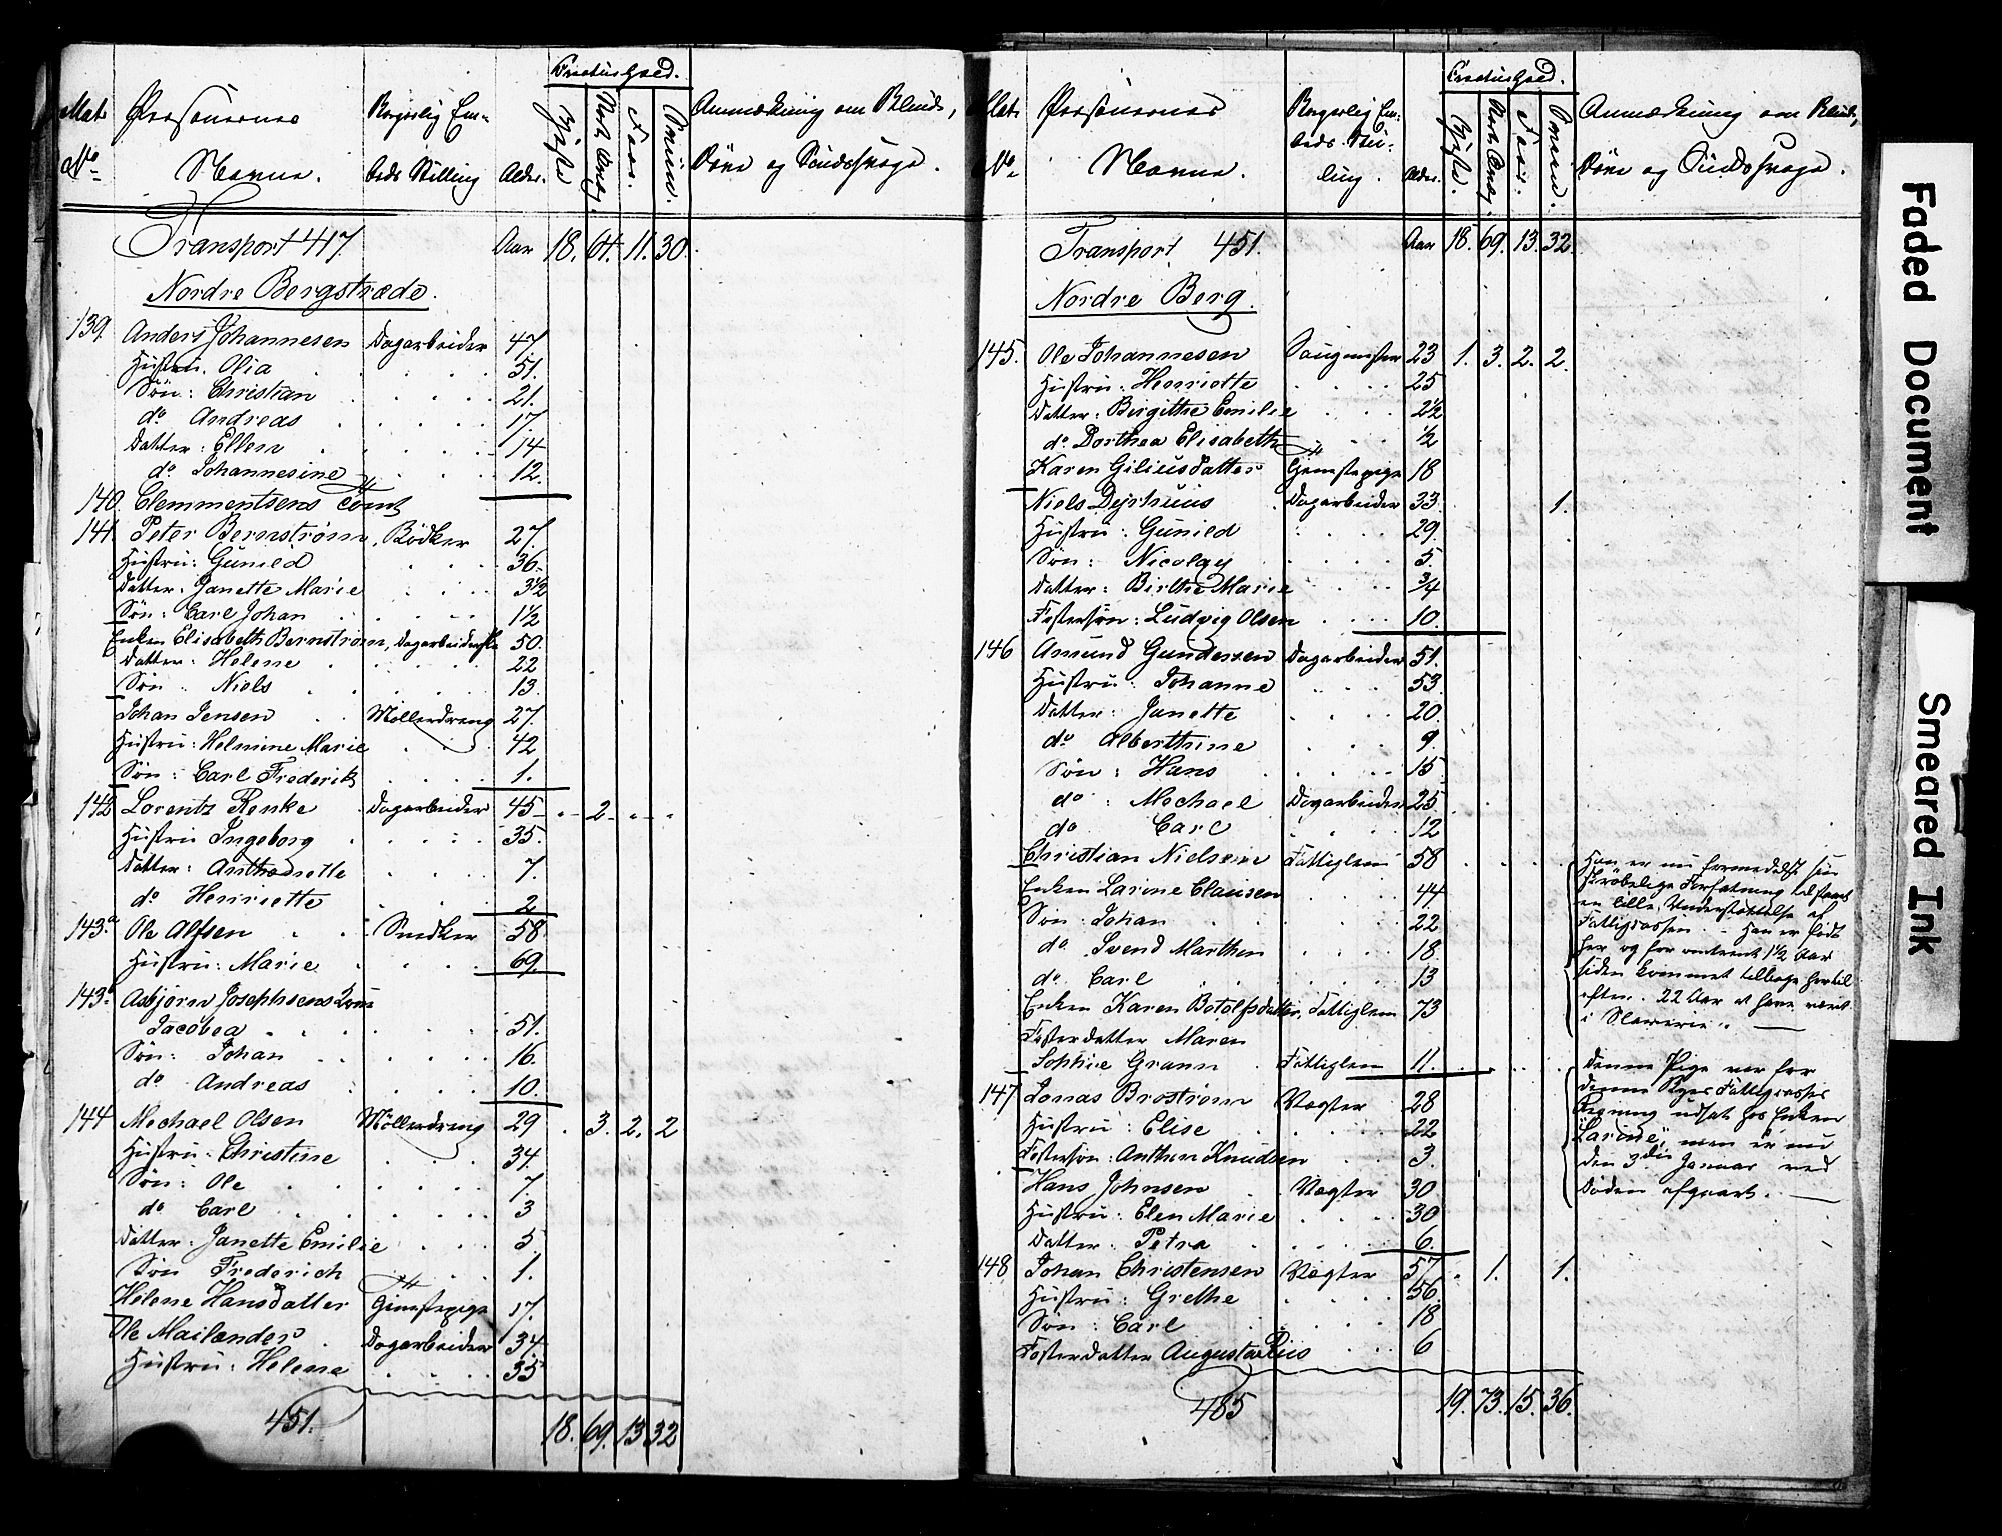 Creaturhold.
Mat. Personernes Borgerlig Em- Anmærkning om Blinde,
No Navne. beds Stilling Alder. Heste Stort Qvæg. Faar. Sviin. Døve og Sindssvage.
Transport 417. Aar 18. 64. 11. 30.
Nordre Bergstræde.
139. Anders Johannesen Dagarbeider 47.
Hustru. Olia 51.
Søn: Christian 21.
do Andreas 17.
Datter: Ellen 14
do Johannesine 12.
140. Clemmentsens Tomt
141. Peter Bernstrøm, Bødker 27.
Hustru: Gunild 36.
Datter: Janette Marie 3½
Søn: Carl Johan 1½
Enken Elisabeth Bernstrøm, Dagarbeiderske 50.
Datter: Helene 22
Søn: Niels 13.
Johan Jensen Møllerdreng 27.
Hustru: Helmine Marie 42
Søn: Carl Frederik 1.
142 Lorentz Renke Dagarbeider 45 - - 2 - - -
Hustru Ingeborg 35.
Datter: Anthonette 7.
do Henriette 2
143.a Ole Alfsen Snedker 58
Hustru: Marie 69.
143.b Asbjørn Josephsens Kone
Jacobea 51.
Søn: Johan 16.
do Andreas 10.
144 Mechael Olsen Møllerdreng 29 . 3. 2. 2
Hustru: Christine 34.
Søn: Ole 7.
do Carl 3
Datter: Janette Emilie 5
Søn Frederich 1.
Helene Hansdatter Tjenestepige 17.
Ole Mailænder Dagarbeider 34
Hustru: Helene 35
451. 18. 69. 13 32
Creaturhold.
Mat. Personernes Borgerlig Em- Anmærkning om Blinde,
No Navne. beds Stil-
ling. Alder. Heste. Stort Qvæg. Faar. Sviin. Døve og Sindssvage.
Transport 451. Aar 18. 69. 13. 32.
Nordre Berg.
145. Ole Johannesen Saugmester 23 1. 3. 2. 2.
Hustru: Henriette 25
Datter: Birgithe Emilie 2½
do Dorthea Elisabeth ½
Karen Giliusdatter Tjenestepige 18
Niels Dejrhuus Dagarbeider 33. 1.
Hustru: Gunild 29.
Søn: Nicolay 5.
Datter: Birthe Marie ¾
Fostersøn: Ludvig Olsen 10.
146 Amund Gundersen Dagarbeider 51.
Hustru: Johanne 53.
Datter: Janette 20.
do Alberthine 9.
Søn: Hans 15
do: Mechael Dagarbeider 25
do Carl 12
Christian Nielsen Fattiglem 58 Han er nu formedelst sin
skrøbelige Forfatning tilstaaet
Enken Larine Clausen 44. en lille Understøttelse af
Søn: Johan 22 Fattigcassen. Han er født
do Svend Marthin 18. her og for omtrent 1½ Aar
do Carl 13 siden kommet tilbage hertil
Enken Karen Botolfsdatter, Fattiglem 73 efter 22 Aar at have været
i Slaverie. —
Fosterdatter Maren
Sophie Grann Fattiglem 11. Denne Pige var for
147 Jonas Brostrøm Vægter 28 denne Byes Fattigcasses
Regning udsat hos Enken
Hustru: Elise 22 "Larine", men er nu
Fostersøn: Anthon Knudsen 3. den 3die Januar ved
Hans Johnsen Vægter 30 Døden afgaaet. —
Hustru: Elen Marie 30
Datter: Petra 6.
148. Johan Christensen Vægter 57 . 1. 1.
Hustru: Grethe 56.
Søn: Carl 18
Fosterdatter Augusta Pius 6
485 19. 73. 15. 36.
Faded Document
Smeared Ink